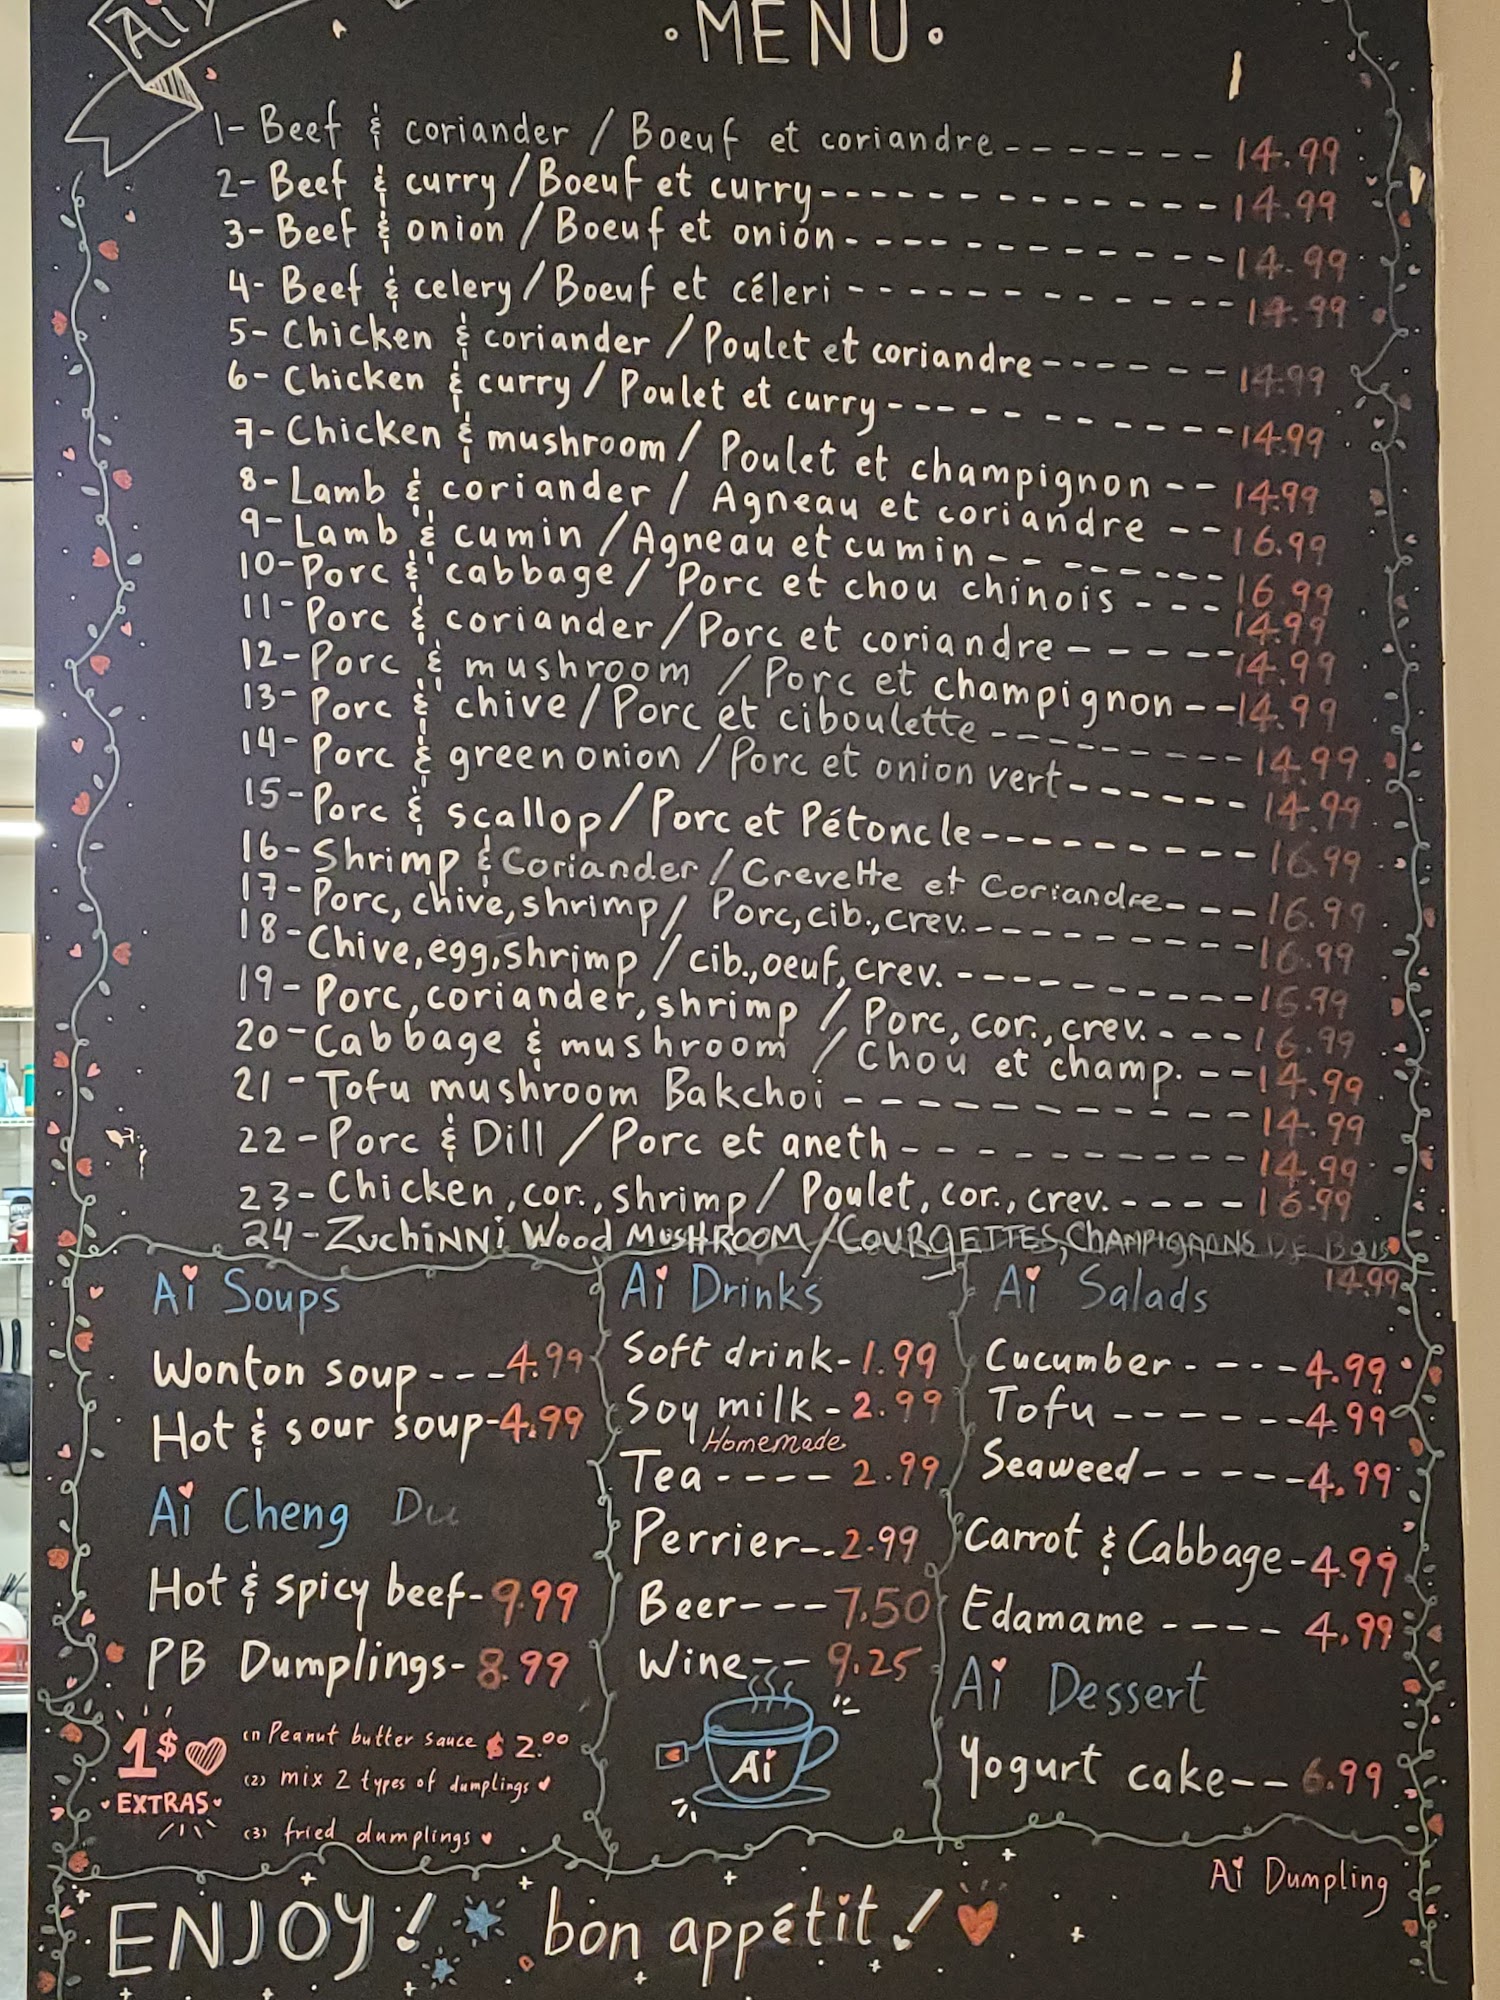 Ai
· MENU ·
1- Beef & coriander / Boeuf et coriandre ------- 14.99
2- Beef & curry / Boeuf et curry -------------- 14.99
3- Beef & onion / Boeuf et onion ------------- 14.99
4- Beef & celery / Boeuf et céleri ------------- 14.99
5- Chicken & coriander / Poulet et coriandre ------ 14.99
6- Chicken & curry / Poulet et curry ----------- 14.99
7- Chicken & mushroom / Poulet et champignon -- 14.99
8- Lamb & coriander / Agneau et coriandre -- 16.99
9- Lamb & cumin / Agneau et cumin -------- 16.99
10- Porc & cabbage / Porc et chou chinois --- 14.99
11- Porc & coriander / Porc et coriandre ----- 14.99
12- Porc & mushroom / Porc et champignon -- 14.99
13- Porc & chive / Porc et ciboulette --------- 14.99
14- Porc & green onion / Porc et onion vert ------ 14.99
15- Porc & scallop / Porc et Pétoncle --------- 16.99
16- Shrimp & Coriander / Crevette et Coriandre --- 16.99
17- Porc, chive, shrimp / Porc, cib., crev. ---------- 16.99
18- Chive, egg, shrimp / cib., oeuf, crev. ---------- 16.99
19- Porc, coriander, shrimp / Porc, cor., crev. --- 16.99
20- Cabbage & mushroom / Chou et champ. -- 14.99
21- Tofu mushroom Bakchoi ------------ 14.99
22- Porc & Dill / Porc et aneth ---------- 14.99
23- Chicken, cor., shrimp / Poulet, cor., crev. ---- 16.99
24- ZuchiNNi Wood MUSHROOM / COURGETTES, CHAMPIGNONS DE BOIS
14.99
Ai Soups
Wonton soup --- 4.99
Hot & sour soup - 4.99
Ai Cheng Du
Hot & spicy beef - 9.99
PB Dumplings - 8.99
1$ EXTRAS
(1) Peanut butter sauce $ 2.00
(2) mix 2 types of dumplings
(3) fried dumplings
Ai Drinks
Soft drink - 1.99
Soy milk - 2.99
Homemade
Tea ---- 2.99
Perrier -- 2.99
Beer --- 7.50
Wine -- 9.25
Ai
Ai Salads
Cucumber ---- 4.99
Tofu ------ 4.99
Seaweed ----- 4.99
Carrot & Cabbage - 4.99
Edamame ---- 4.99
Ai Dessert
Yogurt cake -- 6.99
Ai Dumpling
ENJOY! bon appétit!